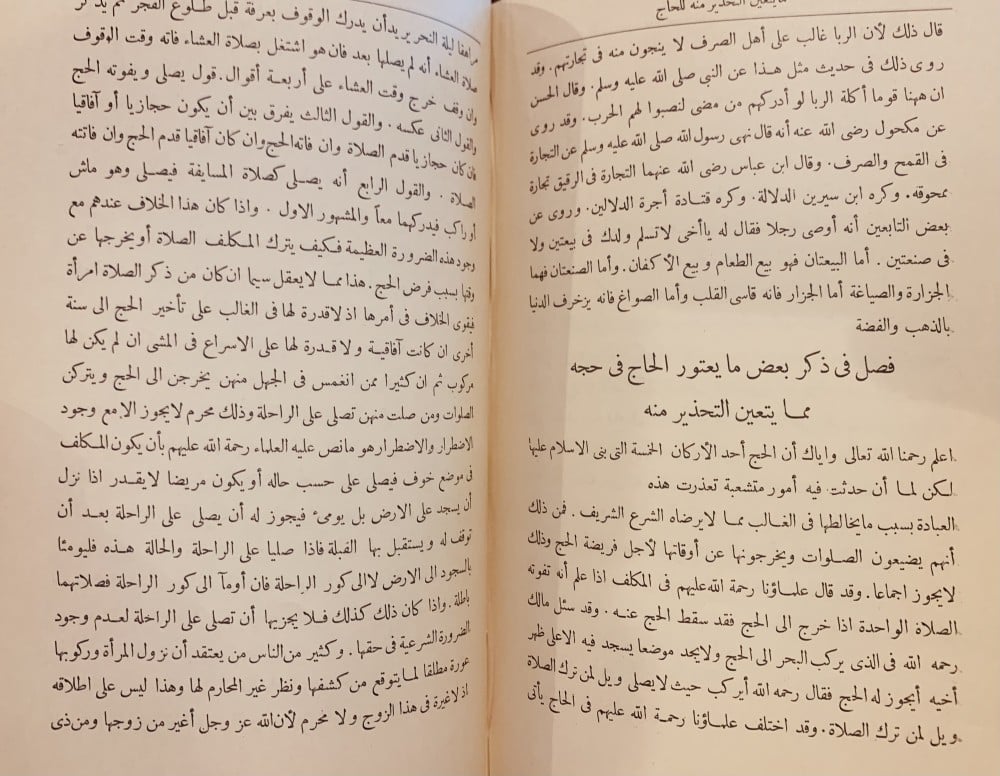 ما يتعين التحذير منه للحاج
قال ذلك لأن الربا غالب على أهل الصرف لا ينجون منه فى تجارتهم . وقد
روى ذلك فى حديث مثل هذا عن النبى صلى الله عليه وسلم . وقال الحسن
ان ههنا قوما أكلة الربا لو أدركهم من مضى لنصبوا لهم الحرب . وقد روى
عن مكحول رضى الله عنه أنه قال نهى رسول الله صلى الله عليه وسلم عن التجارة
فى القمح والصرف . وقال ابن عباس رضى الله عنهما التجارة فى الرقيق تجارة
ممحوقة . وكره ابن سيرين الدلالة . وكره قتادة أجرة الدلالين . وروى عن
بعض التابعين أنه أوصى رجلا فقال له ياأخى لاتسلم ولدك فى بيعتين ولا
فى صنعتين . أما البيعتان فهو بيع الطعام وبيع الأكفان . وأما الصنعتان فهما
الجزارة والصياغة أما الجزار فانه قاسى القلب وأما الصواغ فانه يزخرف الدنيا
بالذهب والفضة
فصل فى ذكر بعض ما يعتور الحاج فى حجه
مما يتعين التحذير منه
اعلم رحمنا الله تعالى واياك أن الحج أحد الأركان الخمسة التى بنى الاسلام عليها
لكن لما أن حدثت فيه أمور متشعبة تعذرت هذه
العبادة بسبب مايخالطها فى الغالب مما لايرضاه الشرع الشريف . فمن ذلك
أنهم يضيعون الصلوات ويخرجونها عن أوقاتها لأجل فريضة الحج وذلك
لايجوز اجماعا . وقد قال علماؤنا رحمة الله عليهم فى المكلف اذا علم أنه تفوته
الصلاة الواحدة اذا خرج الى الحج فقد سقط الحج عنه . وقد سئل مالك
رحمه الله فى الذى يركب البحر الى الحج ولايجد موضعا يسجد فيه الاعلى ظهر
أخيه أيجوز له الحج فقال رحمه الله أيركب حيث لايصلى ويل لمن ترك الصلاة
ويل لمن ترك الصلاة . وقد اختلف علماؤنا رحمة الله عليهم فى الحاج يأتى
مراهقا ليلة النحر يريد أن يدرك الوقوف بعرفة قبل طلوع الفجر ثم يذكر
صلاة العشاء أنه لم يصلها بعد فان هو اشتغل بصلاة العشاء فاته وقت الوقوف
وان وقف خرج وقت العشاء على أربعة أقوال . قول يصلى ويفوته الحج
والقول الثانى عكسه . والقول الثالث يفرق بين أن يكون حجازيا أو آفاقيا
فان كان حجازيا قدم الصلاة وان فاته الحج وان كان آفاقيا قدم الحج وان فاتته
الصلاة . والقول الرابع أنه يصلى كصلاة المسايفة فيصلى وهو ماش
أو راكب فيدركهما معاً والمشهور الاول . واذا كان هذا الخلاف عندهم مع
وجود هذه الضرورة العظيمة فكيف يترك المكلف الصلاة أو يخرجها عن
وقتها بسبب فرض الحج . هذا مما لايعقل سيما ان كان من ذكر الصلاة امرأة
فيقوى الخلاف فى أمرها اذ لاقدرة لها فى الغالب على تأخير الحج الى سنة
أخرى ان كانت آفاقية ولا قدرة لها على الاسراع فى المشى ان لم يكن لها
مركوب ثم ان كثيرا ممن انغمس فى الجهل منهن يخرجن الى الحج ويتركن
الصلوات ومن صلت منهن تصلى على الراحلة وذلك محرم لايجوز الامع وجود
الاضطرار والاضطرار هو مانص عليه العلماء رحمة الله عليهم بأن يكون المكلف
فى موضع خوف فيصلى على حسب حاله أو يكون مريضا لايقدر اذا نزل
أن يسجد على الارض بل يومىء فيجوز له أن يصلى على الراحلة بعد أن
توقف له ويستقبل بها القبلة فاذا صليا على الراحلة والحالة هذه فليومئا
بالسجود الى الارض لاالى كور الراحلة فان أومآ الى كور الراحلة فصلاتهما
باطلة . واذا كان ذلك كذلك فلا يجزيها أن تصلى على الراحلة لعدم وجود
الضرورة الشرعية فى حقها . وكثير من الناس من يعتقد أن نزول المرأة وركوبها
عورة مطلقا لما يتوقع من كشفها ونظر غير المحارم لها وهذا ليس على اطلاقه
اذ لاغيرة فى هذا الزوج ولا محرم لأن الله عز وجل أغير من زوجها ومن ذى